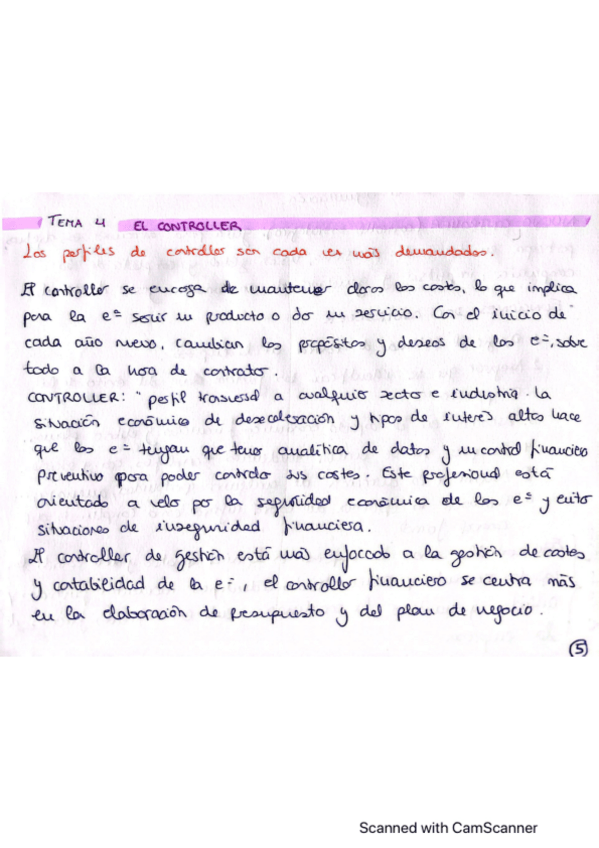 TEMA 4 EL CONTROLLER
Los perfiles de controller son cada vez más demandados.
El controller se encarga de mantener claros los costes, lo que implica
para la eª servir un producto o dar un servicio. Con el inicio de
cada año nuevo, cambian los propósitos y deseos de los eª, sobre
todo a la hora de contratar.
CONTROLLER: "perfil trasversal a cualquier sector e industria. La
situación económica de desaceleración y tipos de interés altos hace
que las eª tengan que tener analítica de datos y un control financiero
preventivo para poder controlar sus costes. Este profesional está
orientado a velar por la seguridad económica de las eª y evitar
situaciones de inseguridad financiera.
El controller de gestión está más enfocado a la gestión de costes
y contabilidad de la eª, el controller financiero se centra más
en la elaboración de presupuesto y del plan de negocio.
5
Scanned with CamScanner